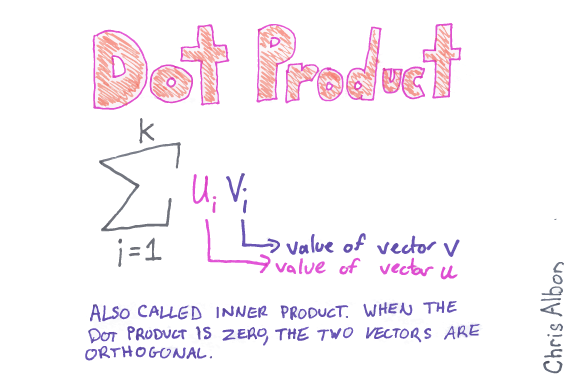 Dot Product
k
Σ ui vi
i=1
value of vector v
value of vector u
ALSO CALLED INNER PRODUCT. WHEN THE
DOT PRODUCT IS ZERO, THE TWO VECTORS ARE
ORTHOGONAL.
Chris Albon